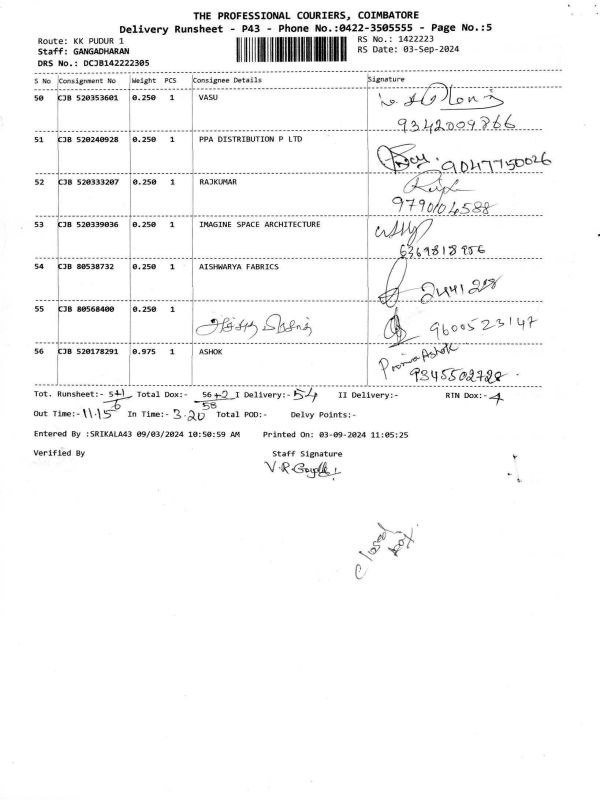 THE PROFESSIONAL COURIERS, COIMBATORE
Delivery Runsheet - P43 - Phone No.:0422-3505555 - Page No.:5
Route: KK PUDUR 1 RS No.: 1422223
Staff: GANGADHARAN RS Date: 03-Sep-2024
DRS No.: DCJB142222305
S No Consignment No Weight PCS Consignee Details Signature
50 CJB 520353601 0.250 1 VASU
9342009866
51 CJB 520240928 0.250 1 PPA DISTRIBUTION P LTD
9047750026
52 CJB 520333207 0.250 1 RAJKUMAR
9790104588
53 CJB 520339036 0.250 1 IMAGINE SPACE ARCHITECTURE
54 CJB 80538732 0.250 1 AISHWARYA FABRICS
2441208
55 CJB 80568400 0.250 1
9600523147
56 CJB 520178291 0.975 1 ASHOK
Ashok
9345502728
Tot. Runsheet:- 5+1 Total Dox:- 56+2 I Delivery:- 54 II Delivery:- RTN Dox:- 4
6 58
Out Time:- 11.15 In Time:- 3.20 Total POD:- Delvy Points:-
Entered By :SRIKALA43 09/03/2024 10:50:59 AM Printed On: 03-09-2024 11:05:25
Verified By Staff Signature
V.R.
closed
box